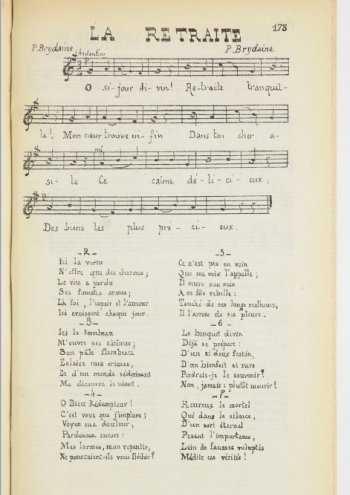 LA RETRAITE
173
P. Brydaine
P. Brydaine
Andantino
O sé-jour di-vin! Re-traite tranquil-
le! Mon cœur trouve en-fin Dans ton cher a-
si-le Ce calme dé-li-ci-eux,
Des biens les plus pré-ci-eux.
-2-
Ici la vertu
N'offre que des charmes;
Le vice a perdu
Ses funestes armes;
La foi, l'espoir et l'amour
Ici croissent chaque jour.
-3-
Ici le tombeau
M'ouvre ses abîmes;
Son pâle flambeau
Eclaire mes crimes,
Et d'un monde séduisant
Me découvre le néant.
-4-
O Dieu Rédempteur!
C'est vous que j'implore;
Voyez ma douleur,
Pardonnez encore:
Mes larmes, mon repentir,
Ne pourraient-ils vous fléchir?
-5-
Ce n'est pas en vain
Que ma voix l'appelle;
Il ouvre son sein
A ce fils rebelle:
Touché de ses longs malheurs,
Il l'arrose de ses pleurs.
-6-
Le banquet divin
Déjà se prépare!
D'un si doux festin,
D'un bienfait si rare
Perdrais-je le souvenir?
Non, jamais; plutôt mourir!
-7-
Heureux le mortel
Qui dans le silence,
D'un sort éternel
Pesant l'importance,
Loin de fausses voluptés
Médite ces vérités!